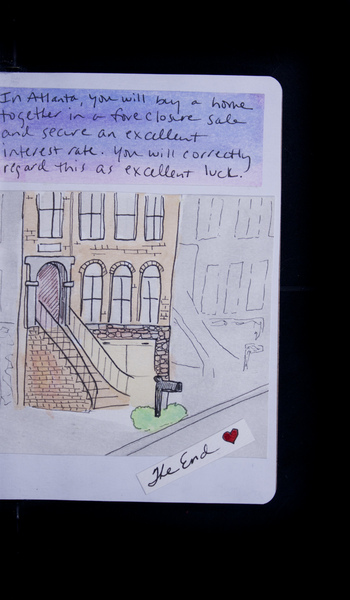 In Atlanta, you will buy a home
together in a foreclosure sale
and secure an excellent
interest rate. You will correctly
regard this as excellent luck.
The End